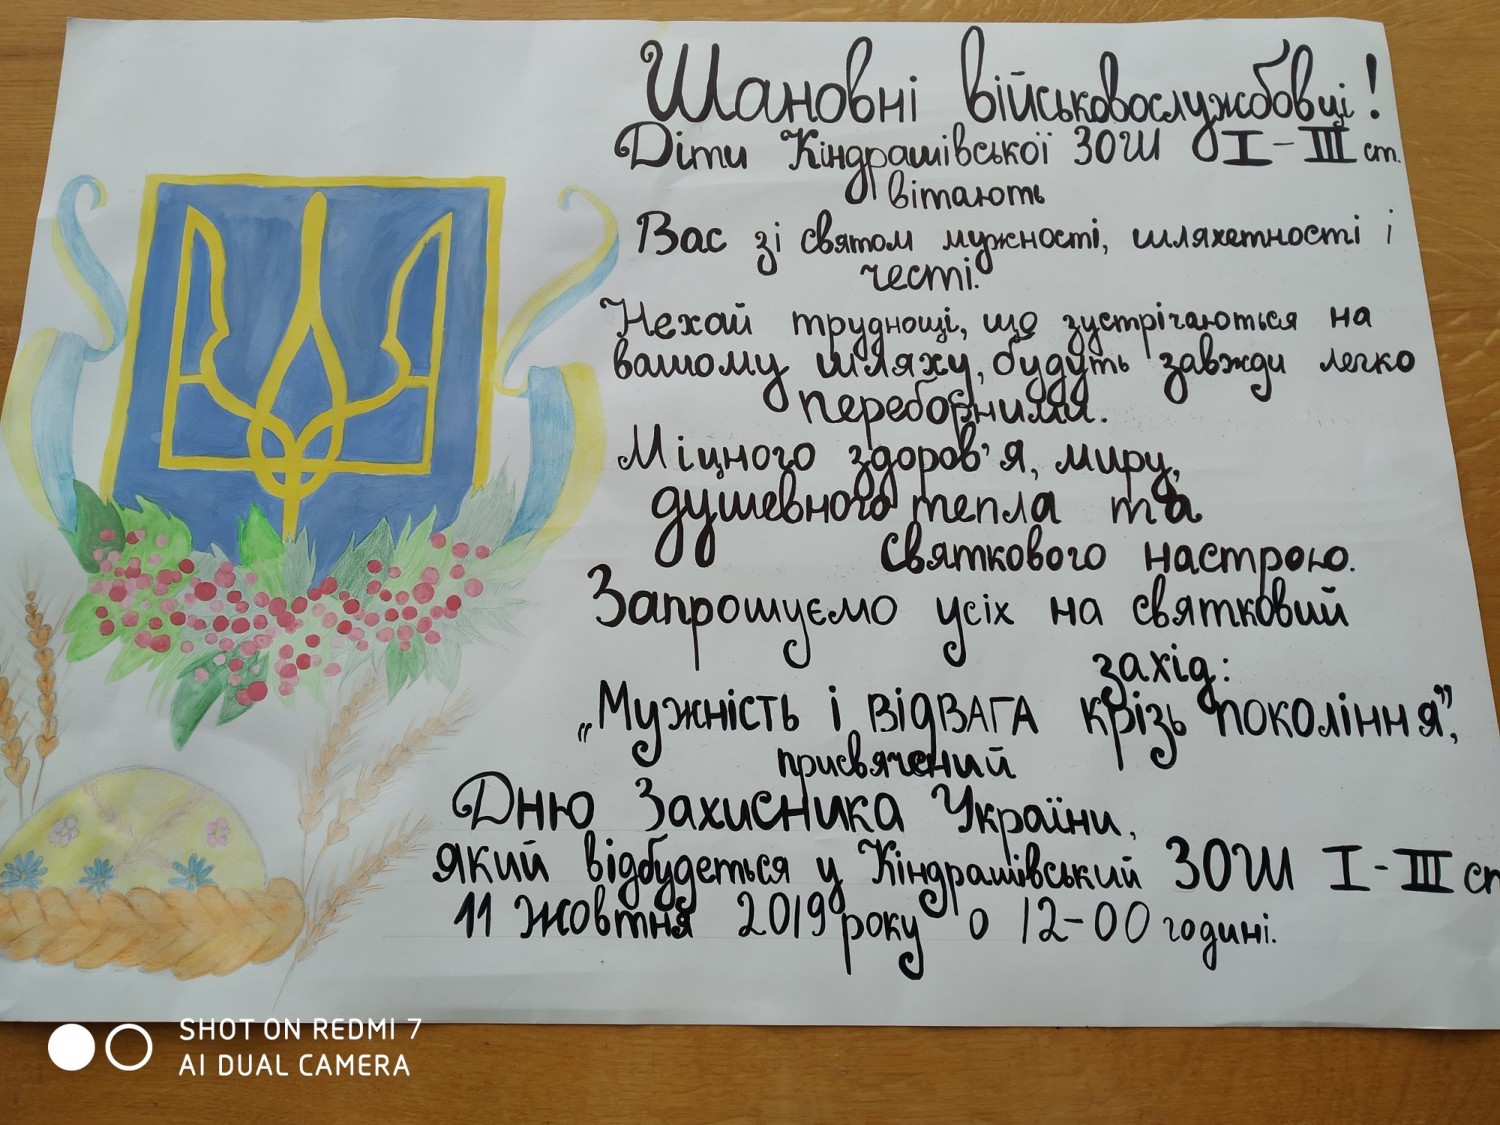 Шановні військовослужбовці!
Діти Кіндрашівської ЗОШ І-ІІІ ст.
вітають
Вас зі святом мужності, шляхетності і
честі.
Нехай труднощі, що зустрічаються на
вашому шляху, будуть завжди легко
переборними.
Міцного здоров'я, миру,
душевного тепла та
святкового настрою.
Запрошуємо усіх на святковий
захід:
„Мужність і ВІДВАГА крізь покоління",
присвячений
Дню Захисника України,
який відбудеться у Кіндрашівський ЗОШ І-ІІІ ст
11 жовтня 2019 року о 12-00 годині.
SHOT ON REDMI 7
AI DUAL CAMERA